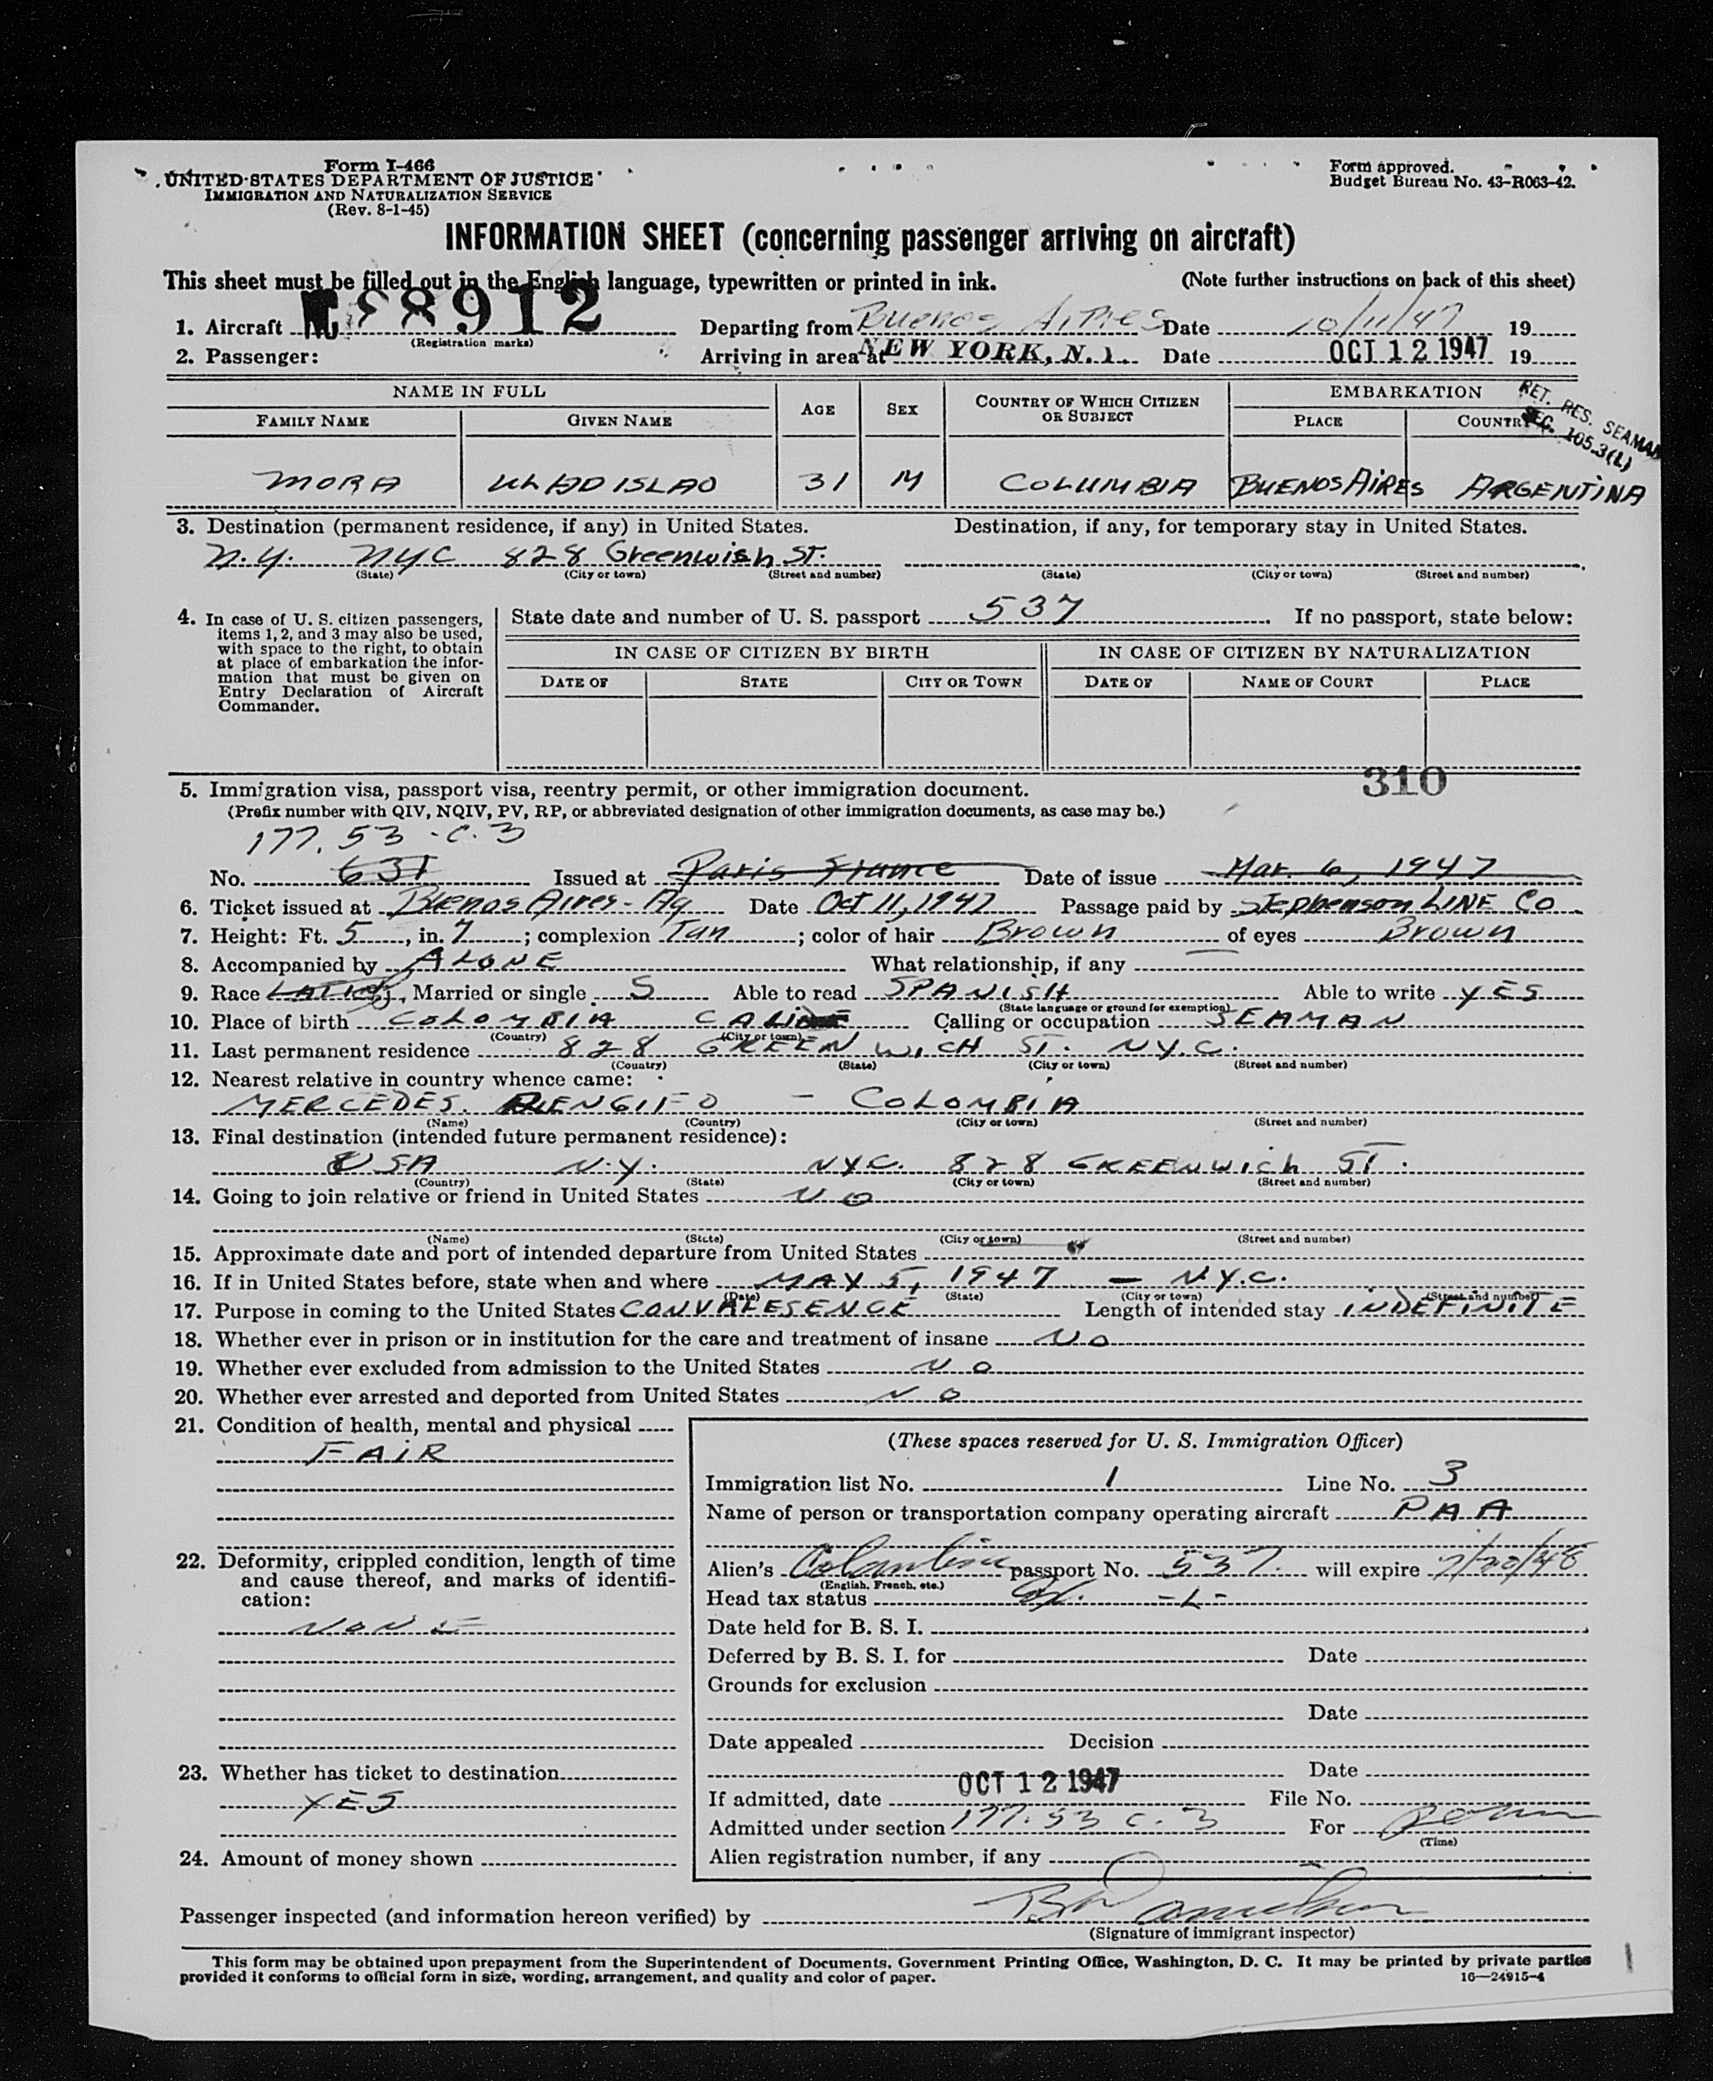 Form I-466
UNITED STATES DEPARTMENT OF JUSTICE
IMMIGRATION AND NATURALIZATION SERVICE
(Rev. 8-1-45)
Form approved.
Budget Bureau No. 43-R063-42.
INFORMATION SHEET (concerning passenger arriving on aircraft)
This sheet must be filled out in the English language, typewritten or printed in ink. (Note further instructions on back of this sheet)
1. Aircraft NC 88912 Departing from Buenos Aires Date 10/11/47 19
(Registration marks)
2. Passenger: Arriving in area at NEW YORK, N. Y. Date OCT 12 1947 19
NAME IN FULL AGE SEX COUNTRY OF WHICH CITIZEN OR SUBJECT EMBARKATION
FAMILY NAME GIVEN NAME PLACE COUNTRY
RET. RES. SEAMAN
SEC. 105.3(L)
MORA ULADISLAO 31 M COLUMBIA BUENOS AIRES ARGENTINA
3. Destination (permanent residence, if any) in United States. Destination, if any, for temporary stay in United States.
N.Y. NYC 828 Greenwish ST.
(State) (City or town) (Street and number) (State) (City or town) (Street and number)
4. In case of U. S. citizen passengers, items 1, 2, and 3 may also be used, with space to the right, to obtain at place of embarkation the information that must be given on Entry Declaration of Aircraft Commander.
State date and number of U. S. passport 537 If no passport, state below:
IN CASE OF CITIZEN BY BIRTH IN CASE OF CITIZEN BY NATURALIZATION
DATE OF STATE CITY OR TOWN DATE OF NAME OF COURT PLACE
310
5. Immigration visa, passport visa, reentry permit, or other immigration document.
(Prefix number with QIV, NQIV, PV, RP, or abbreviated designation of other immigration documents, as case may be.)
177.53 - C. 3
No. 631 Issued at Paris France Date of issue Mar. 6, 1947
6. Ticket issued at Buenos Aires - Ag Date Oct 11, 1947 Passage paid by Stephenson LINE Co
7. Height: Ft. 5, in. 7; complexion Tan; color of hair Brown of eyes Brown
8. Accompanied by ALONE What relationship, if any —
9. Race LATIN, Married or single S Able to read SPANISH Able to write YES
(State language or ground for exemption)
10. Place of birth COLOMBIA CALI Calling or occupation SEAMAN
(Country) (City or town)
11. Last permanent residence 828 GREENWICH ST. N.Y.C.
(Country) (State) (City or town) (Street and number)
12. Nearest relative in country whence came:
MERCEDES RENGIFO - COLOMBIA
(Name) (Country) (City or town) (Street and number)
13. Final destination (intended future permanent residence):
USA N.Y. NYC. 828 GREENWICH ST.
(Country) (State) (City or town) (Street and number)
14. Going to join relative or friend in United States NO
(Name) (State) (City or town) (Street and number)
15. Approximate date and port of intended departure from United States
16. If in United States before, state when and where MAY 5, 1947 — N.Y.C.
(Date) (State) (City or town) (Street and number)
17. Purpose in coming to the United States CONVALESENCE Length of intended stay INDEFINITE
18. Whether ever in prison or in institution for the care and treatment of insane NO
19. Whether ever excluded from admission to the United States NO
20. Whether ever arrested and deported from United States NO
21. Condition of health, mental and physical
FAIR
22. Deformity, crippled condition, length of time and cause thereof, and marks of identification:
NONE
23. Whether has ticket to destination
YES
24. Amount of money shown
(These spaces reserved for U. S. Immigration Officer)
Immigration list No. 1 Line No. 3
Name of person or transportation company operating aircraft PAA
Alien's Colombian passport No. 537 will expire 7/20/48
(English, French, etc.)
Head tax status -L-
Date held for B. S. I.
Deferred by B. S. I. for Date
Grounds for exclusion
Date
Date appealed Decision
Date
If admitted, date OCT 12 1947 File No.
Admitted under section 177.53 C. 3 For perm
(Time)
Alien registration number, if any
Passenger inspected (and information hereon verified) by
(Signature of immigrant inspector)
This form may be obtained upon prepayment from the Superintendent of Documents, Government Printing Office, Washington, D. C. It may be printed by private parties
provided it conforms to official form in size, wording, arrangement, and quality and color of paper. 16—24915-4